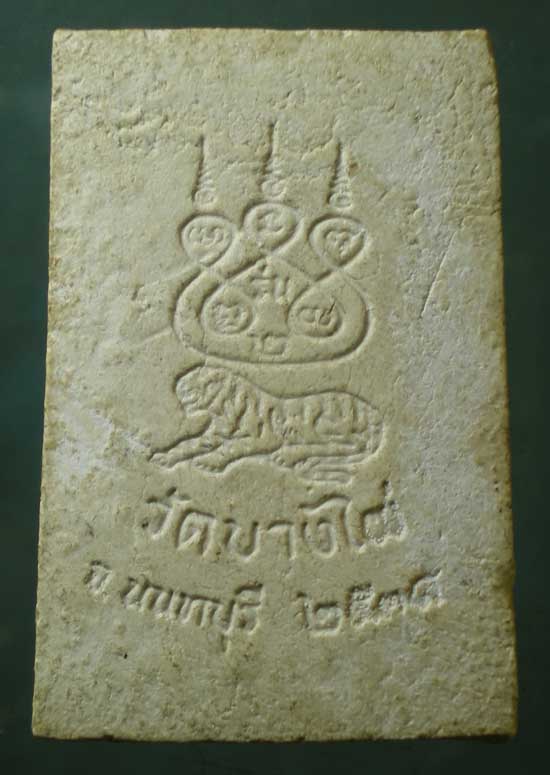 รุ่น
๒
วัดบางไผ่
จ.นนทบุรี ๒๕๓๘